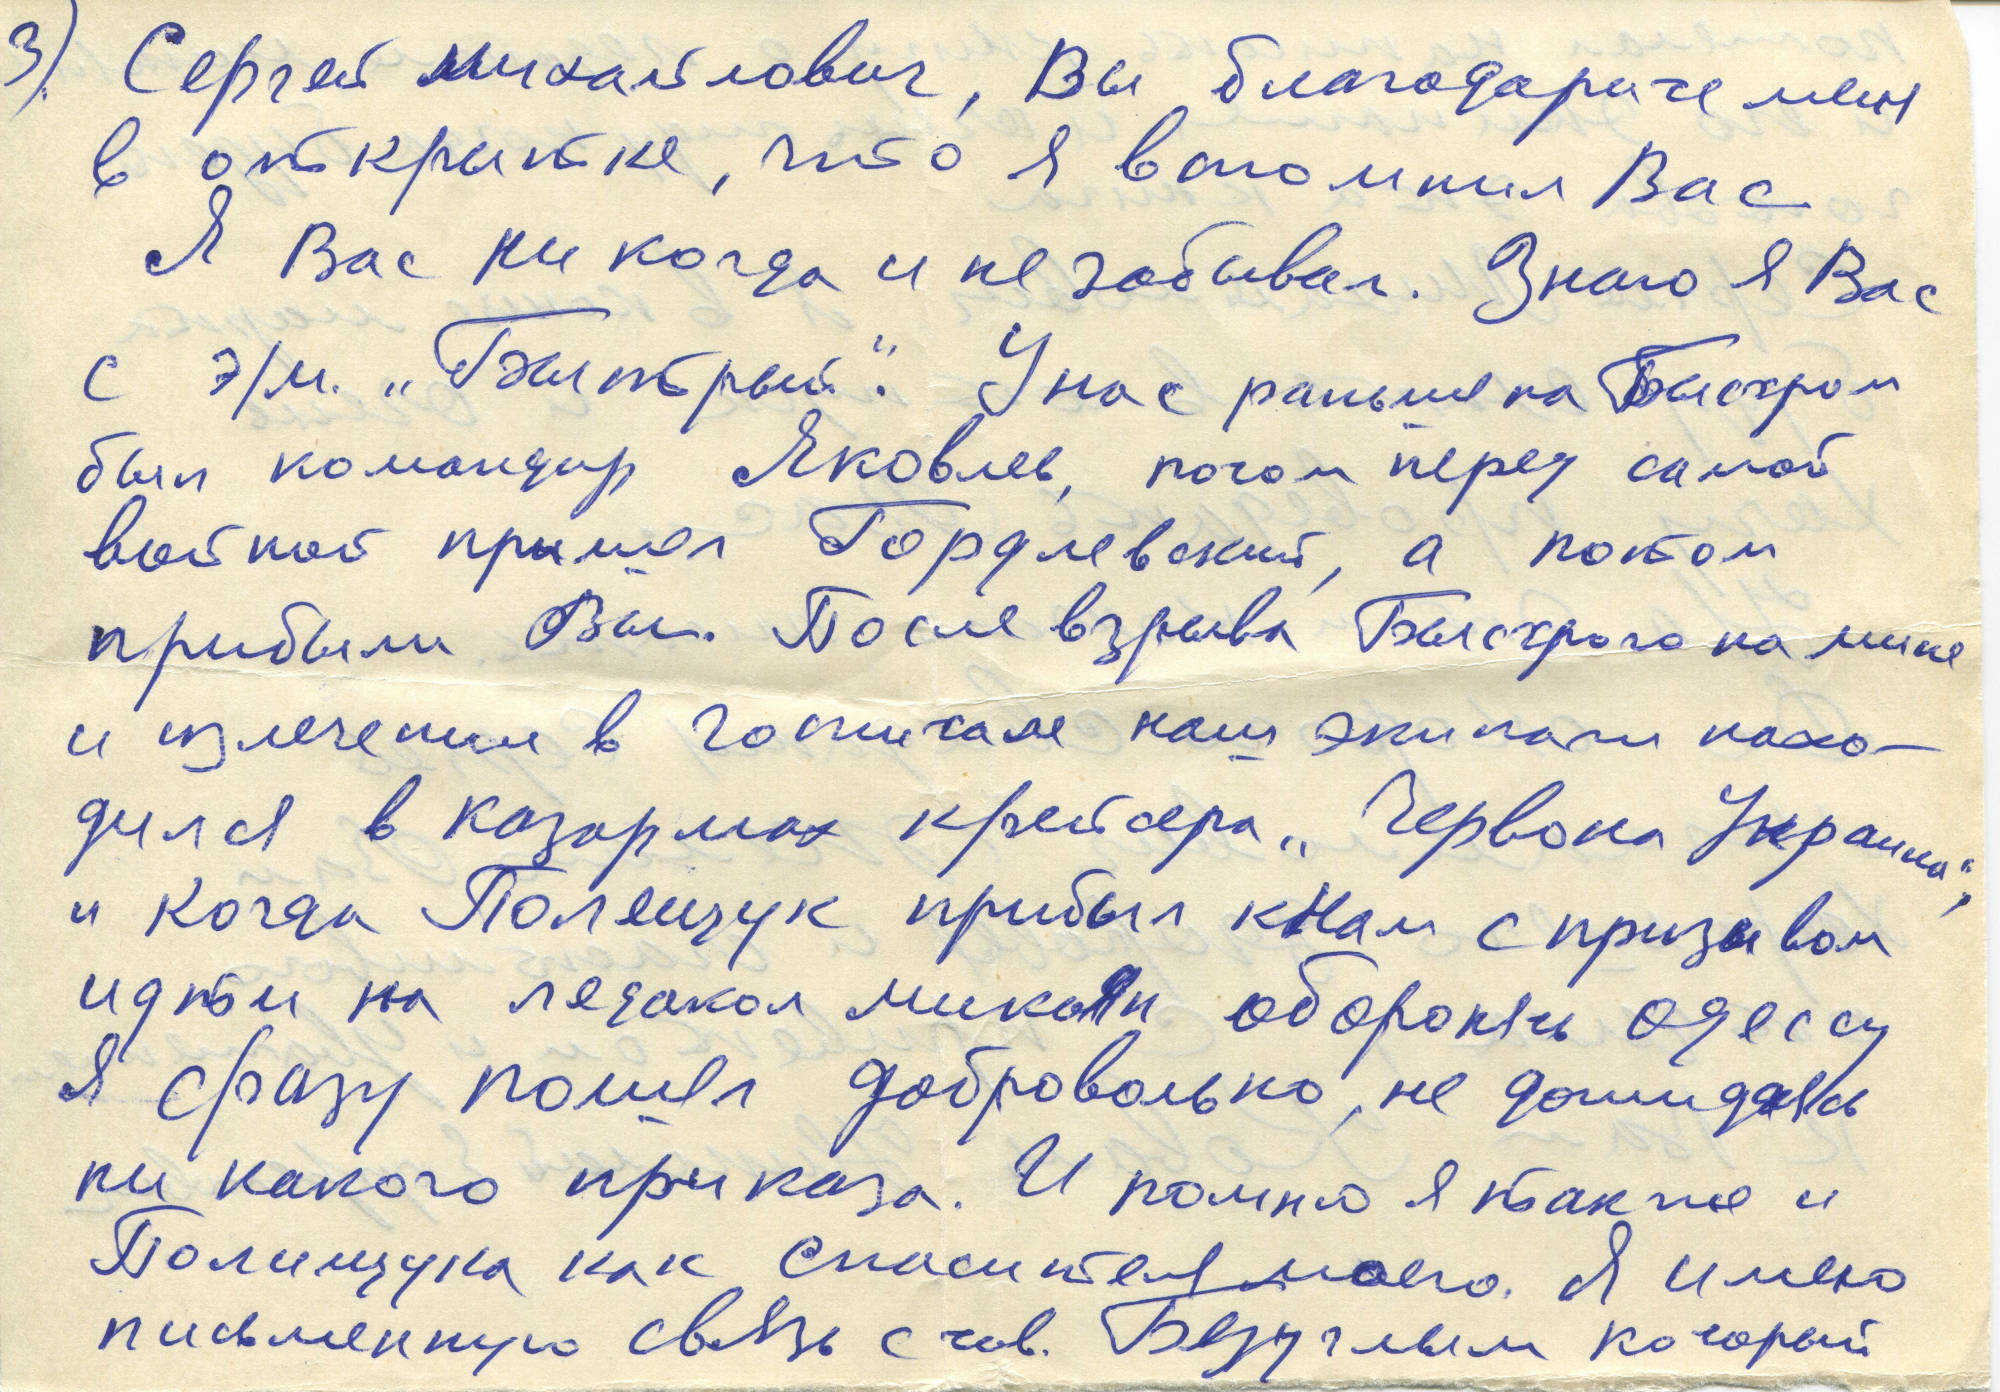 3) Сергей Михайлович, Вы благодарите меня
в открытке, что я вспомнил Вас
Я Вас ни когда и не забывал. Знаю я Вас
с э/м. „Быстрый". У нас раньше на Быстром
был командир Яковлев, потом перед самой
войной пришел Гордлевский, а потом
прибыли Вы. После взрыва Быстрого на мине
и излечении в госпитале наш экипаж нахо-
дился в казармах крейсера „Червона Украина",
и когда Полещук прибыл к нам с призывом
идти на ледакол микоян оборонять Одессу
Я сразу пошел добровольно, не дожидаясь
ни какого приказа. И помню я также и
Полищука как спасителя моего. Я имею
письменную связь с тов. Безуглым который